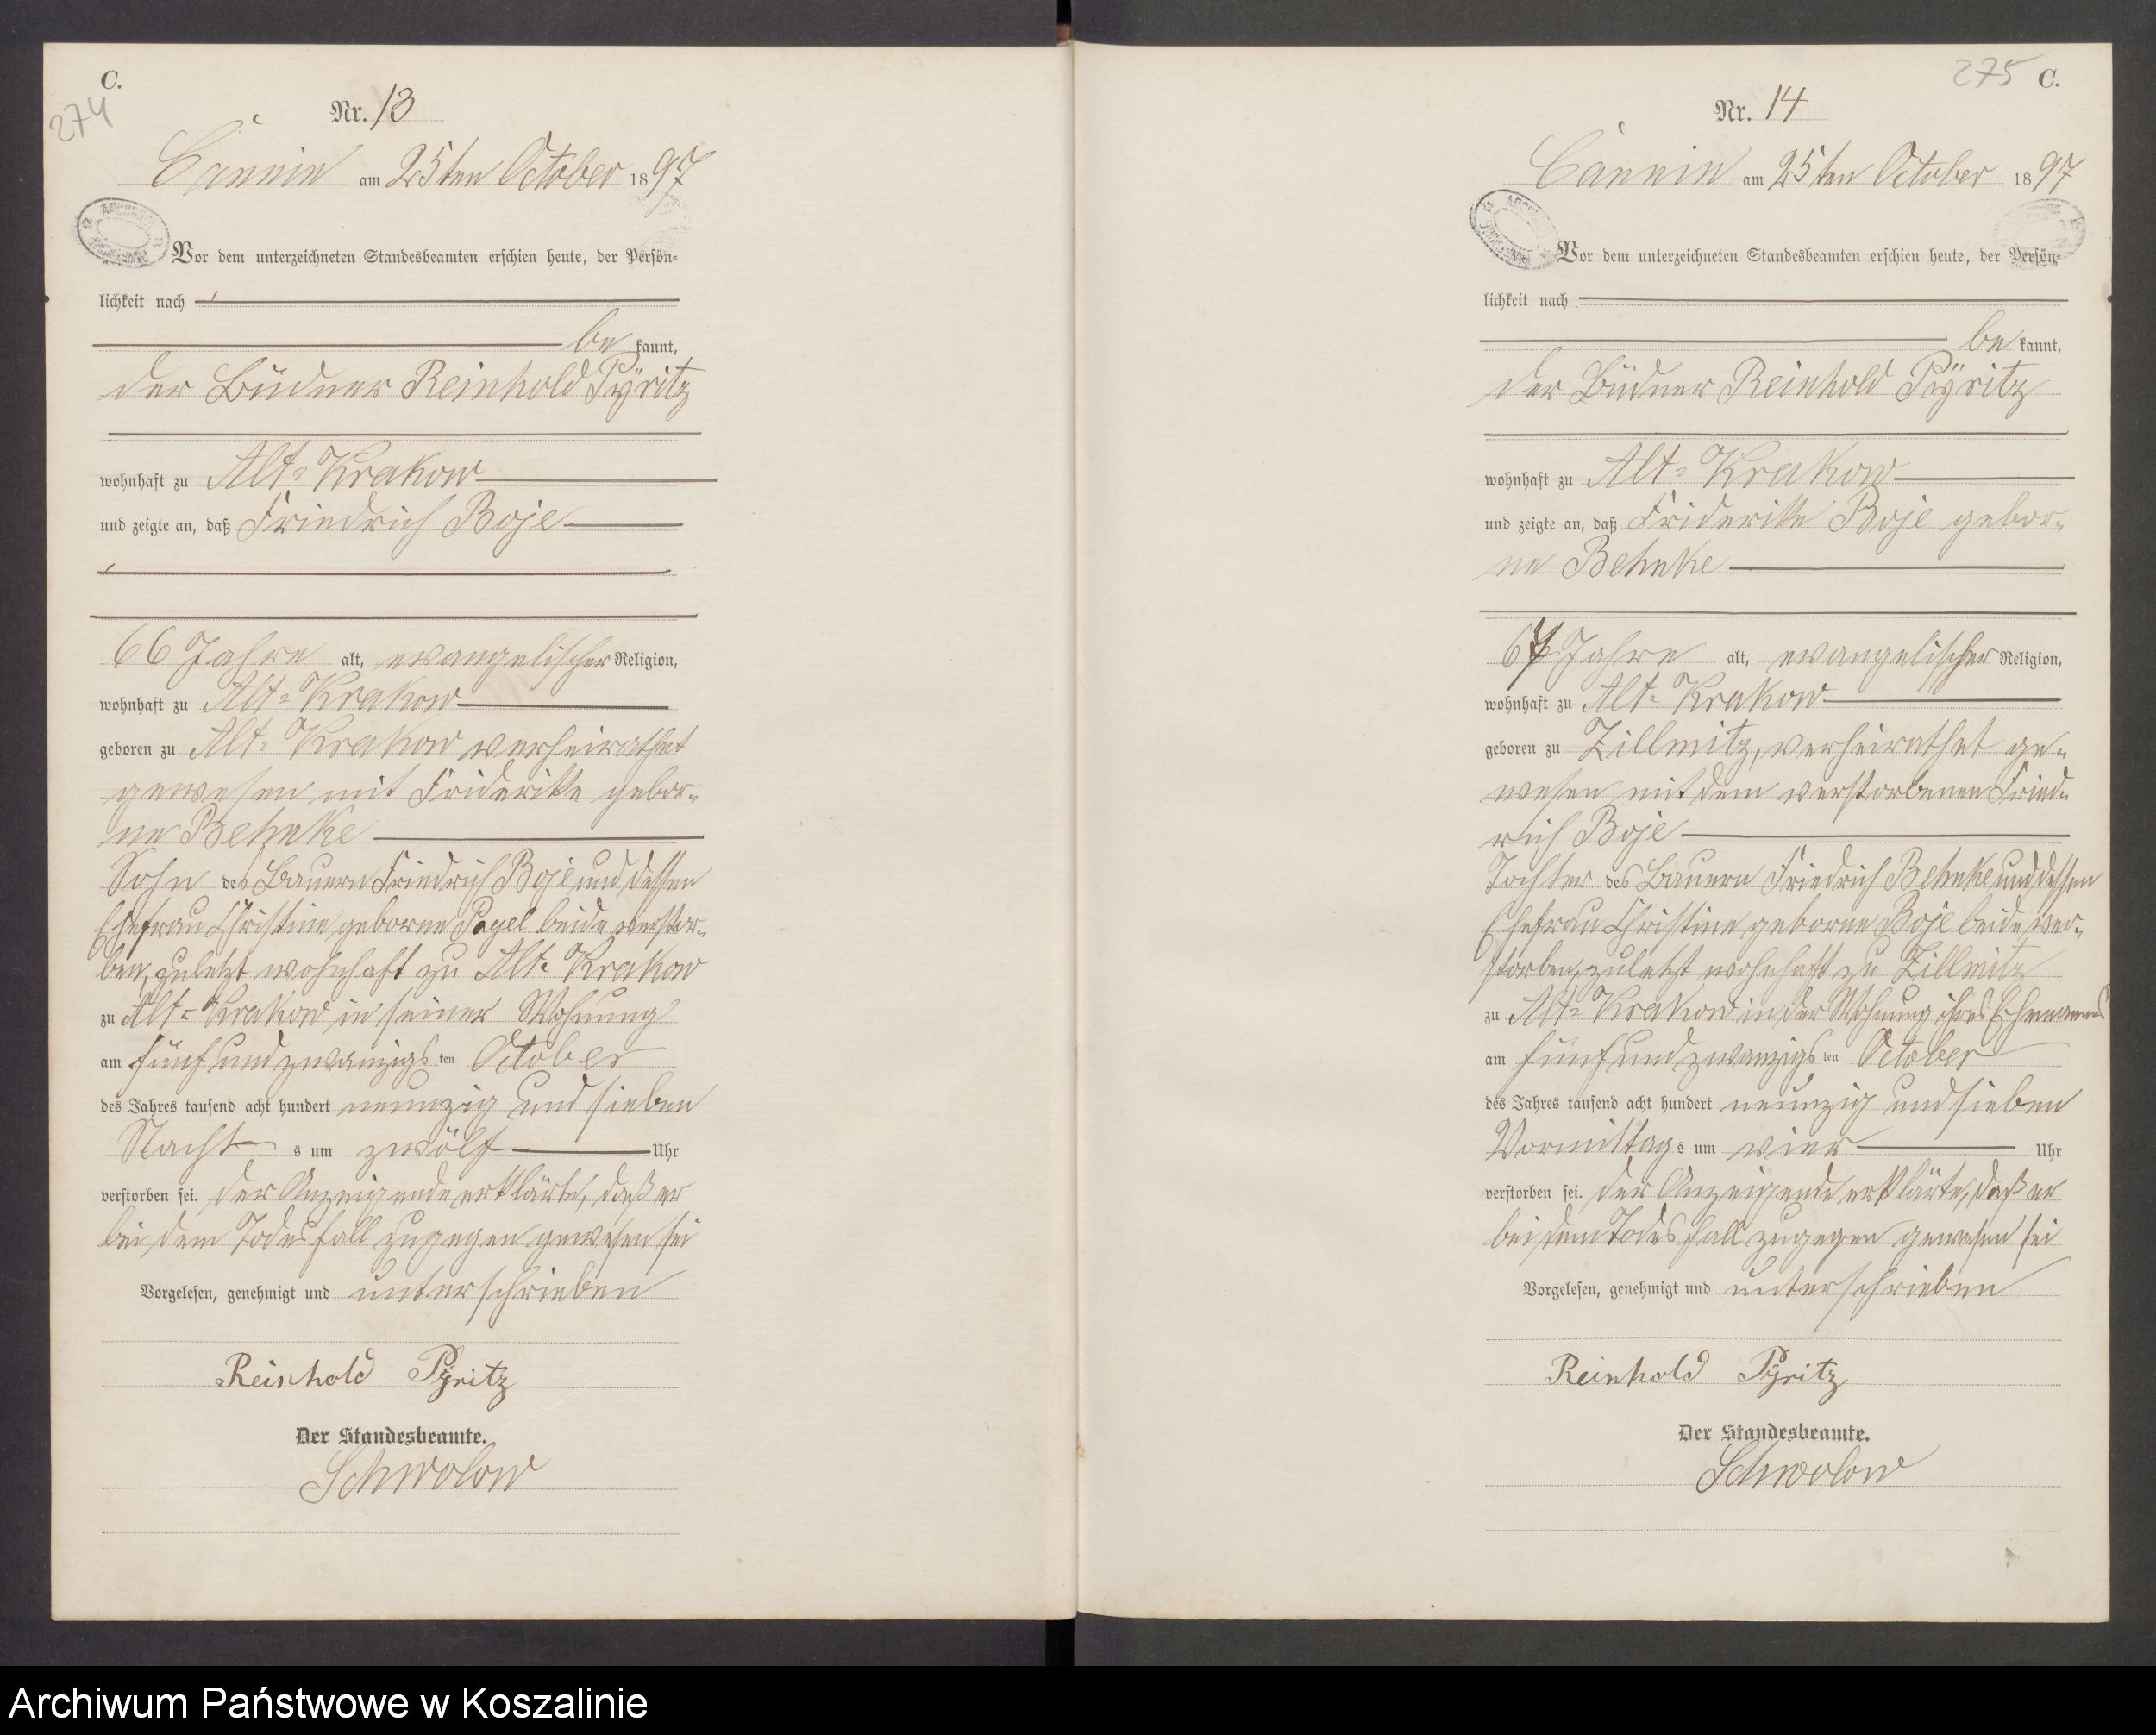 C.
274
Nr. 13
Cannin am 25ten October 1897
Vor dem unterzeichneten Standesbeamten erschien heute, der Persön-
lichkeit nach
be kannt,
der Büdner Reinhold Pÿritz
wohnhaft zu Alt-Krakow
und zeigte an, daß Friedrich Boje
66 Jahre alt, evangelischer Religion,
wohnhaft zu Alt-Krakow
geboren zu Alt-Krakow verheirathet
gewesen mit Friderike gebor-
ne Behnke
Sohn des Bauern Friedrich Boje und dessen
Ehefrau Christine geborne Pagel beide verstor-
ben, zuletzt wohnhaft zu Alt-Krakow
zu Alt-Krakow in seiner Wohnung
am fünf und zwanzigsten October
des Jahres tausend acht hundert neunzig und sieben
Nachts um zwölf Uhr
verstorben sei. der Anzeigende erklärte, daß er
bei dem Todesfall zugegen gewesen sei
Vorgelesen, genehmigt und unterschrieben
Reinhold Pÿritz
Der Standesbeamte.
Schwolow
275 C.
Nr. 14
Cannin am 25ten October 1897
Vor dem unterzeichneten Standesbeamten erschien heute, der Persön-
lichkeit nach
be kannt,
der Büdner Reinhold Pÿritz
wohnhaft zu Alt-Krakow
und zeigte an, daß Friderike Boje gebor-
ne Behnke
67 Jahre alt, evangelischer Religion,
wohnhaft zu Alt-Krakow
geboren zu Zillmitz, verheirathet ge-
wesen mit dem verstorbenen Fried-
rich Boje
Tochter des Bauern Friedrich Behnke und dessen
Ehefrau Christine geborne Boje beide ver-
storben, zuletzt wohnhaft zu Zillmitz
zu Alt-Krakow in der Wohnung ihres Ehemannes
am fünf und zwanzigsten October
des Jahres tausend acht hundert neunzig und sieben
Vormittags um vier Uhr
verstorben sei. der Anzeigende erklärte, daß er
bei dem Todesfall zugegen gewesen sei
Vorgelesen, genehmigt und unterschrieben
Reinhold Pÿritz
Der Standesbeamte.
Schwolow
Archiwum Państwowe w Koszalinie